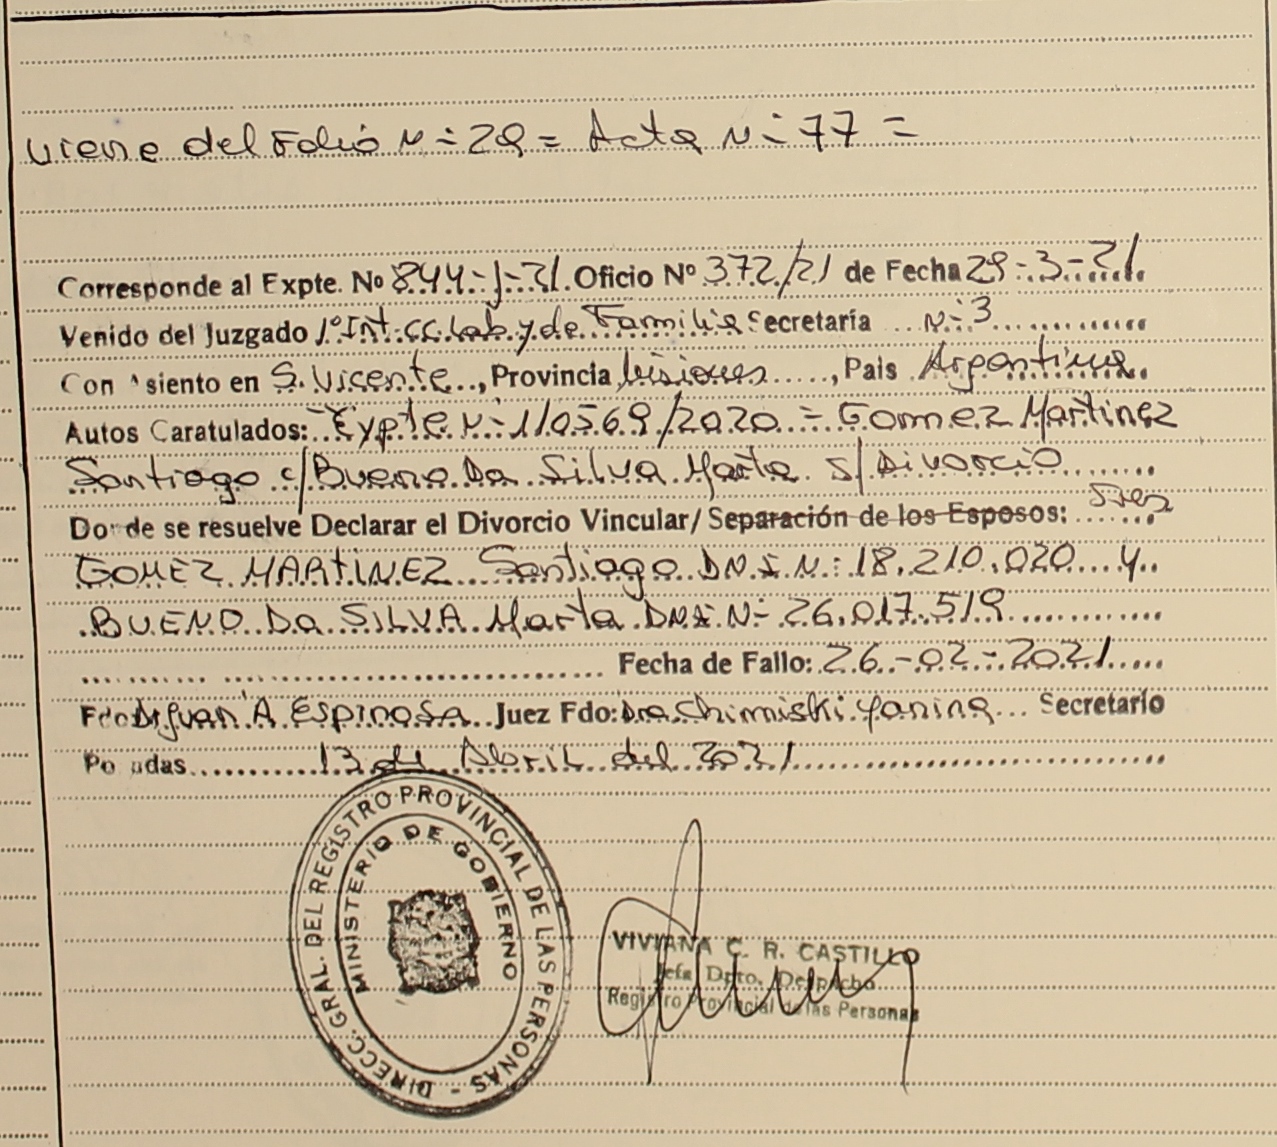 viene del Folio N= 29 = Acta N= 77 =
Corresponde al Expte. No 844-J-21. Oficio No 372/21 de Fecha 29-3-21.
Venido del Juzgado 1º Int. CC. Lab y de Familia Secretaría N=3
Con siento en S. Vicente, Provincia Misiones, Pais Argentina.
Autos Caratulados: Expte N= 110569/2020 = Gomez Martinez
Santiago c/ Bueno Da Silva Marta s/ Divorcio
Do de se resuelve Declarar el Divorcio Vincular/ Separación de los Esposos: Sres
GOMEZ MARTINEZ Santiago DNI N: 18.210.020 y
BUENO Da SILVA Marta DNI N= 26.017.519
Fecha de Fallo: 26-02-2021
Fdo Dr Juan A. Espinosa Juez Fdo: Dra Chimiski Yanina Secretario
Po adas 13 de Abril del 2021
DIRECC. GRAL. DEL REGISTRO PROVINCIAL DE LAS PERSONAS -
MINISTERIO DE GOBIERNO
VIVIANA C. R. CASTILLO
Jefa Dpto. Despacho
Registro Provincial de las Personas